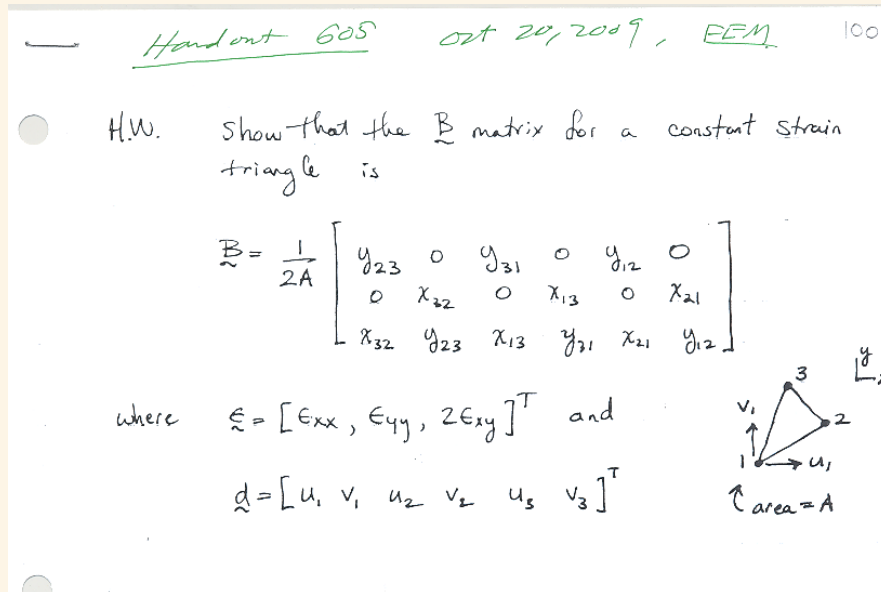 Handout 605 oct 20, 2009, EEM 100
H.W. show that the B matrix for a constant strain
triangle is
B = 1/2A [ y23 0 y31 0 y12 0
0 x32 0 x13 0 x21
x32 y23 x13 y31 x21 y12 ]
where ε = [Exx, Eyy, 2Exy]^T and
d = [u1 v1 u2 v2 u3 v3]^T
y
3
v1
2
1
u1
area = A